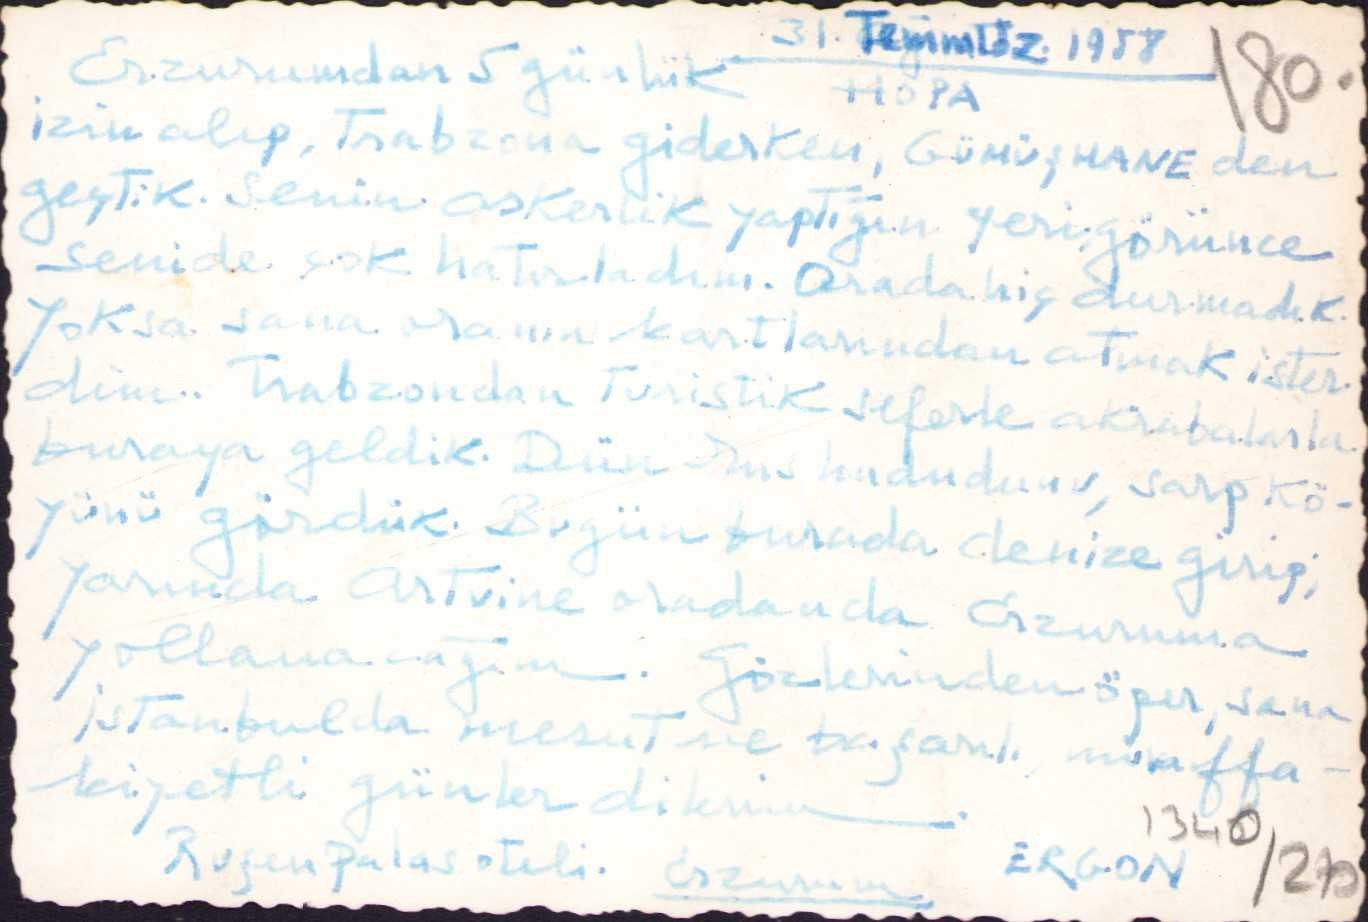 31. Temmuz. 1958
180.
HOPA
Erzurumdan 5 günlük
izin alıp, Trabzona giderken, GÜMÜŞHANE den
geçtik. Senin askerlik yaptığın yeri görünce
senide çok hatırladım. Orada hiç durmadık.
Yoksa sana oranın kartlarından atmak ister-
dim.. Trabzondan Turistik seferle akrabalarla
buraya geldik. Dün Rus hududunu, Sarp kö-
yünü gördük. Bugün burada denize girip,
yarında Artvine oradanda Erzuruma
yollanacağım. Gözlerinden öper, sana
İstanbulda mesut ve başarılı muaffa-
kiyetli günler dilerim.
Ruşenpalas oteli. Erzurum
ERGON
1340/270